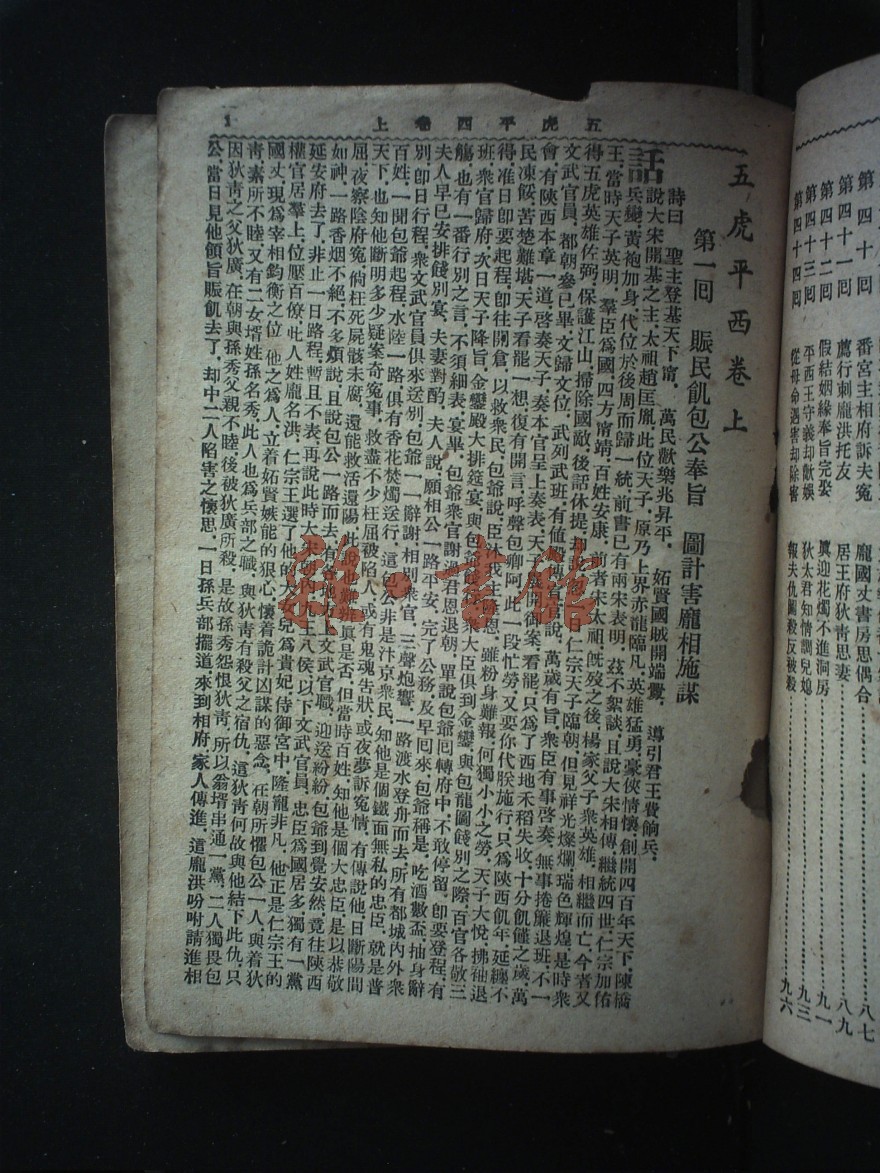 五虎平四卷上
1
五虎平西卷上
第一囘　賬民飢包公奉旨　圖計害龐相施謀
詩曰　聖主登基天下甯，萬民歡樂兆昇平，妬賢國賊開端釁，導引君王費餉兵，
話說大宋開基之主，太祖趙匡胤，此位天子，原乃上界赤龍臨凡，英雄猛勇，豪俠情懷，創開四百年天下，陳橋
兵變，黃袍加身，代位於後周而歸一統，前書已有兩宋表明，茲不絮談，且說大宋相傳，繼統四世，仁宗加佑
王，當時天子英明，羣臣爲國，四方甯靖，百姓安康，前者宋太祖旣歿之後，楊家父子衆英雄，相繼而亡，今者又
得五虎英雄佐弼，保護江山，掃除國敵，後話休提，仁宗天子臨朝，但見祥光燦爛，瑞色輝煌，是時衆
文武官員，都朝參已畢，文歸文位，武列武班，有值殿官傳說，萬歲有旨，衆臣有事啓奏，無事捲簾退班，不一
會，有陝西本章一道，啓奏天子，奏本官呈上奏表，天子展開御案，看罷只爲了西地禾稻失收，十分飢饉之歲，萬
民凍餒，苦楚難堪，天子看罷一想，復有開言，呼聲包卿阿，此一段忙勞，又要你代朕施行，只爲陝西飢年延纏不
得，准日卽要起程，卽往開倉，以救衆民，包爺說，臣沐我主恩，雖粉身難報，何獨小小之勞，天子大悅，拂袖退
班，衆官歸府，次日天子降旨，金鑾殿大排筵宴，與包爺餞，衆大臣俱到金鑾，與包龍圖餞別之際，百官各敬三
觴，也有一番行別之言，不須細表，宴畢，包爺衆官謝過君恩退朝，單說包爺囘轉府中，不敢停留，卽要登程，有
夫人早已安排餞別宴，夫妻對酌，夫人說，願相公一路平安，完了公務，及早囘來，包爺稱是，吃酒數盃，抽身辭
別，卽日行程，衆文武官員俱來送別，包爺一一辭謝，相別衆官，三聲炮響，一路渡水登舟而去，所有都城內外衆
百姓，一聞包爺起程，水陸一路，俱有香花焚燭送行，這包公非是汴京衆民，知他是個鐵面無私的忠臣，就是普
天下，也知他斷明多少疑案奇寃事，救盡不少枉屈被陷人，或有鬼魂告狀，或夜夢訴寃情，有傳說他，日斷陽間
屈，夜察陰府寃，倘枉死屍骸未腐，還能救活還陽，此眞是否，但當時百姓，知他是個大忠臣，是以恭敬
如神，一路香烟不絕，不多煩說，且說包公一路而去，有各地方文武官職，迎送紛紛，包爺到覺安然，竟往陝西
延安府去了，非止一日路程，暫且不表，再說此時大宋王八侯，以下文武官員，忠臣爲國居多，獨有一黨
權官居羣上，位壓百僚，此人姓龐名洪，仁宗王選了他的大女兒爲貴妃，侍御宮中，隆寵非凡，他正是仁宗王的
國丈，現爲宰相鈞衡之位，他之爲人，立着妬賢嫉能的狠心，懷着詭計凶謀的惡念，在朝所懼包公一人，與着狄
靑素所不睦，又有二女壻，姓孫名秀，此人也爲兵部之職，與狄靑有殺父之宿仇，這狄靑何故與他結下此仇，只
因狄靑之父狄廣，在朝與孫秀父親不睦，後被狄廣所殺，是故孫秀怨恨狄靑，所以翁壻串通一黨，二人獨畏包
公，當日見他領旨賑飢去了，却中二人陷害之懷思，一日孫兵部擺道來到相府，家人傳進，這龐洪吩咐請進相
雜·書館
第四十回　番宮主相府訴夫寃
第四十一回　薦行刺龐洪托友
第四十二回　假結姻緣奉旨完娶
第四十三回　平西王守義却歡娛
第四十四回　從母命遇害却除害
龐國丈書房思偶合　八七
居王府狄靑思妻　八九
冀迎花燭不進洞房　九一
狄太君情調兒媳　九三
報夫仇圖殺反被殺　九六